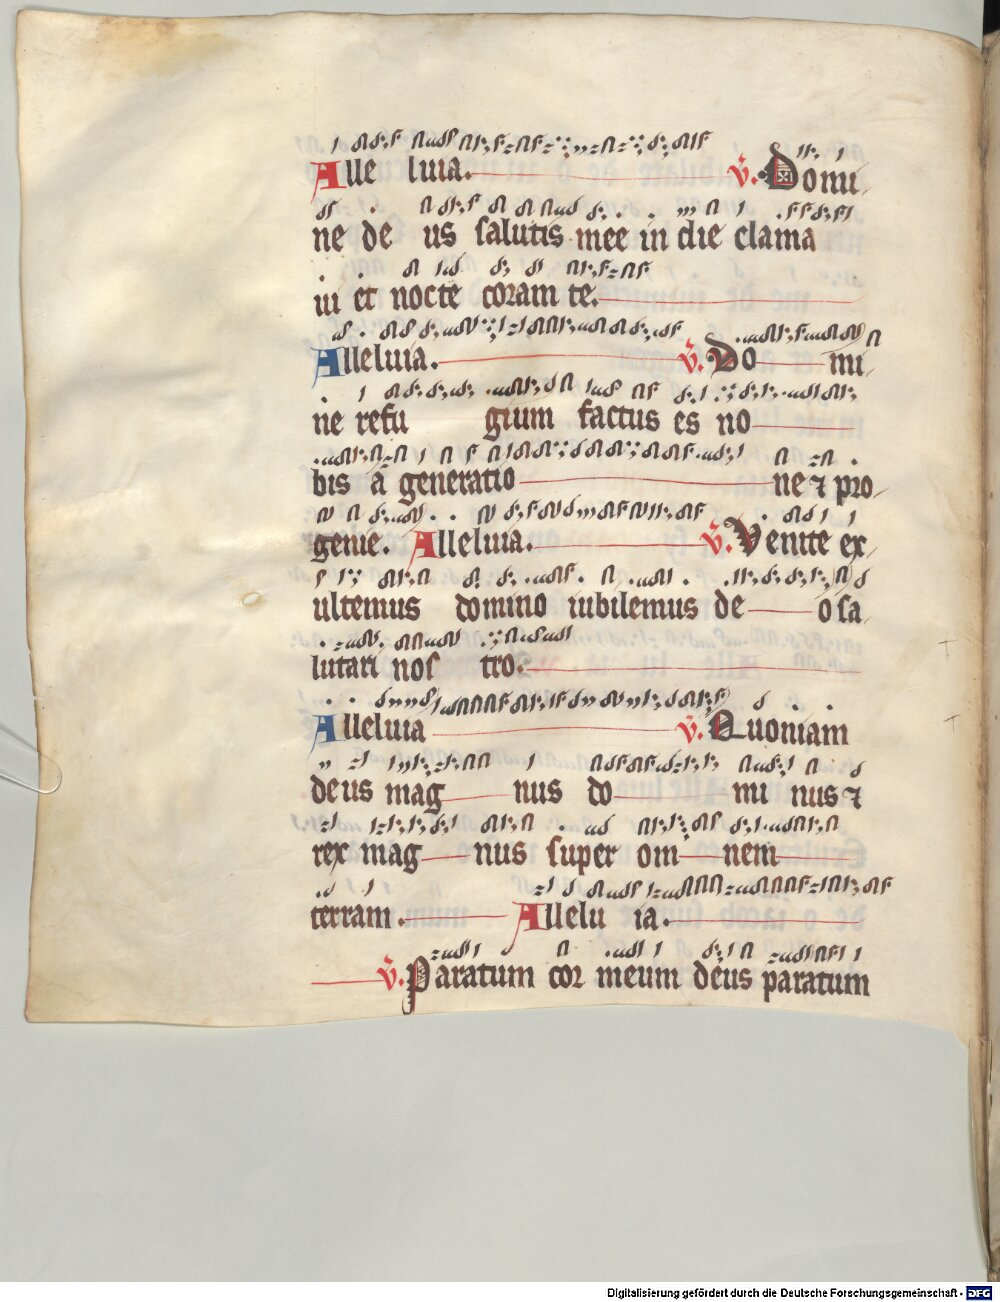 Alle luia. v. Domi
ne de us salutis mee in die clama
ui et nocte coram te.
Alleluia. v. Do mi
ne refu gium factus es no
bis a generatio ne ⁊ pro
genie. Alleluia. v. Venite ex
ultemus domino iubilemus de o sa
lutari nos tro.
Alleluia v. Quoniam
deus mag nus do mi nus ⁊
rex mag nus super om nem
terram. Allelu ia.
v. Paratum cor meum deus paratum
Digitalisierung gefördert durch die Deutsche Forschungsgemeinschaft - DFG